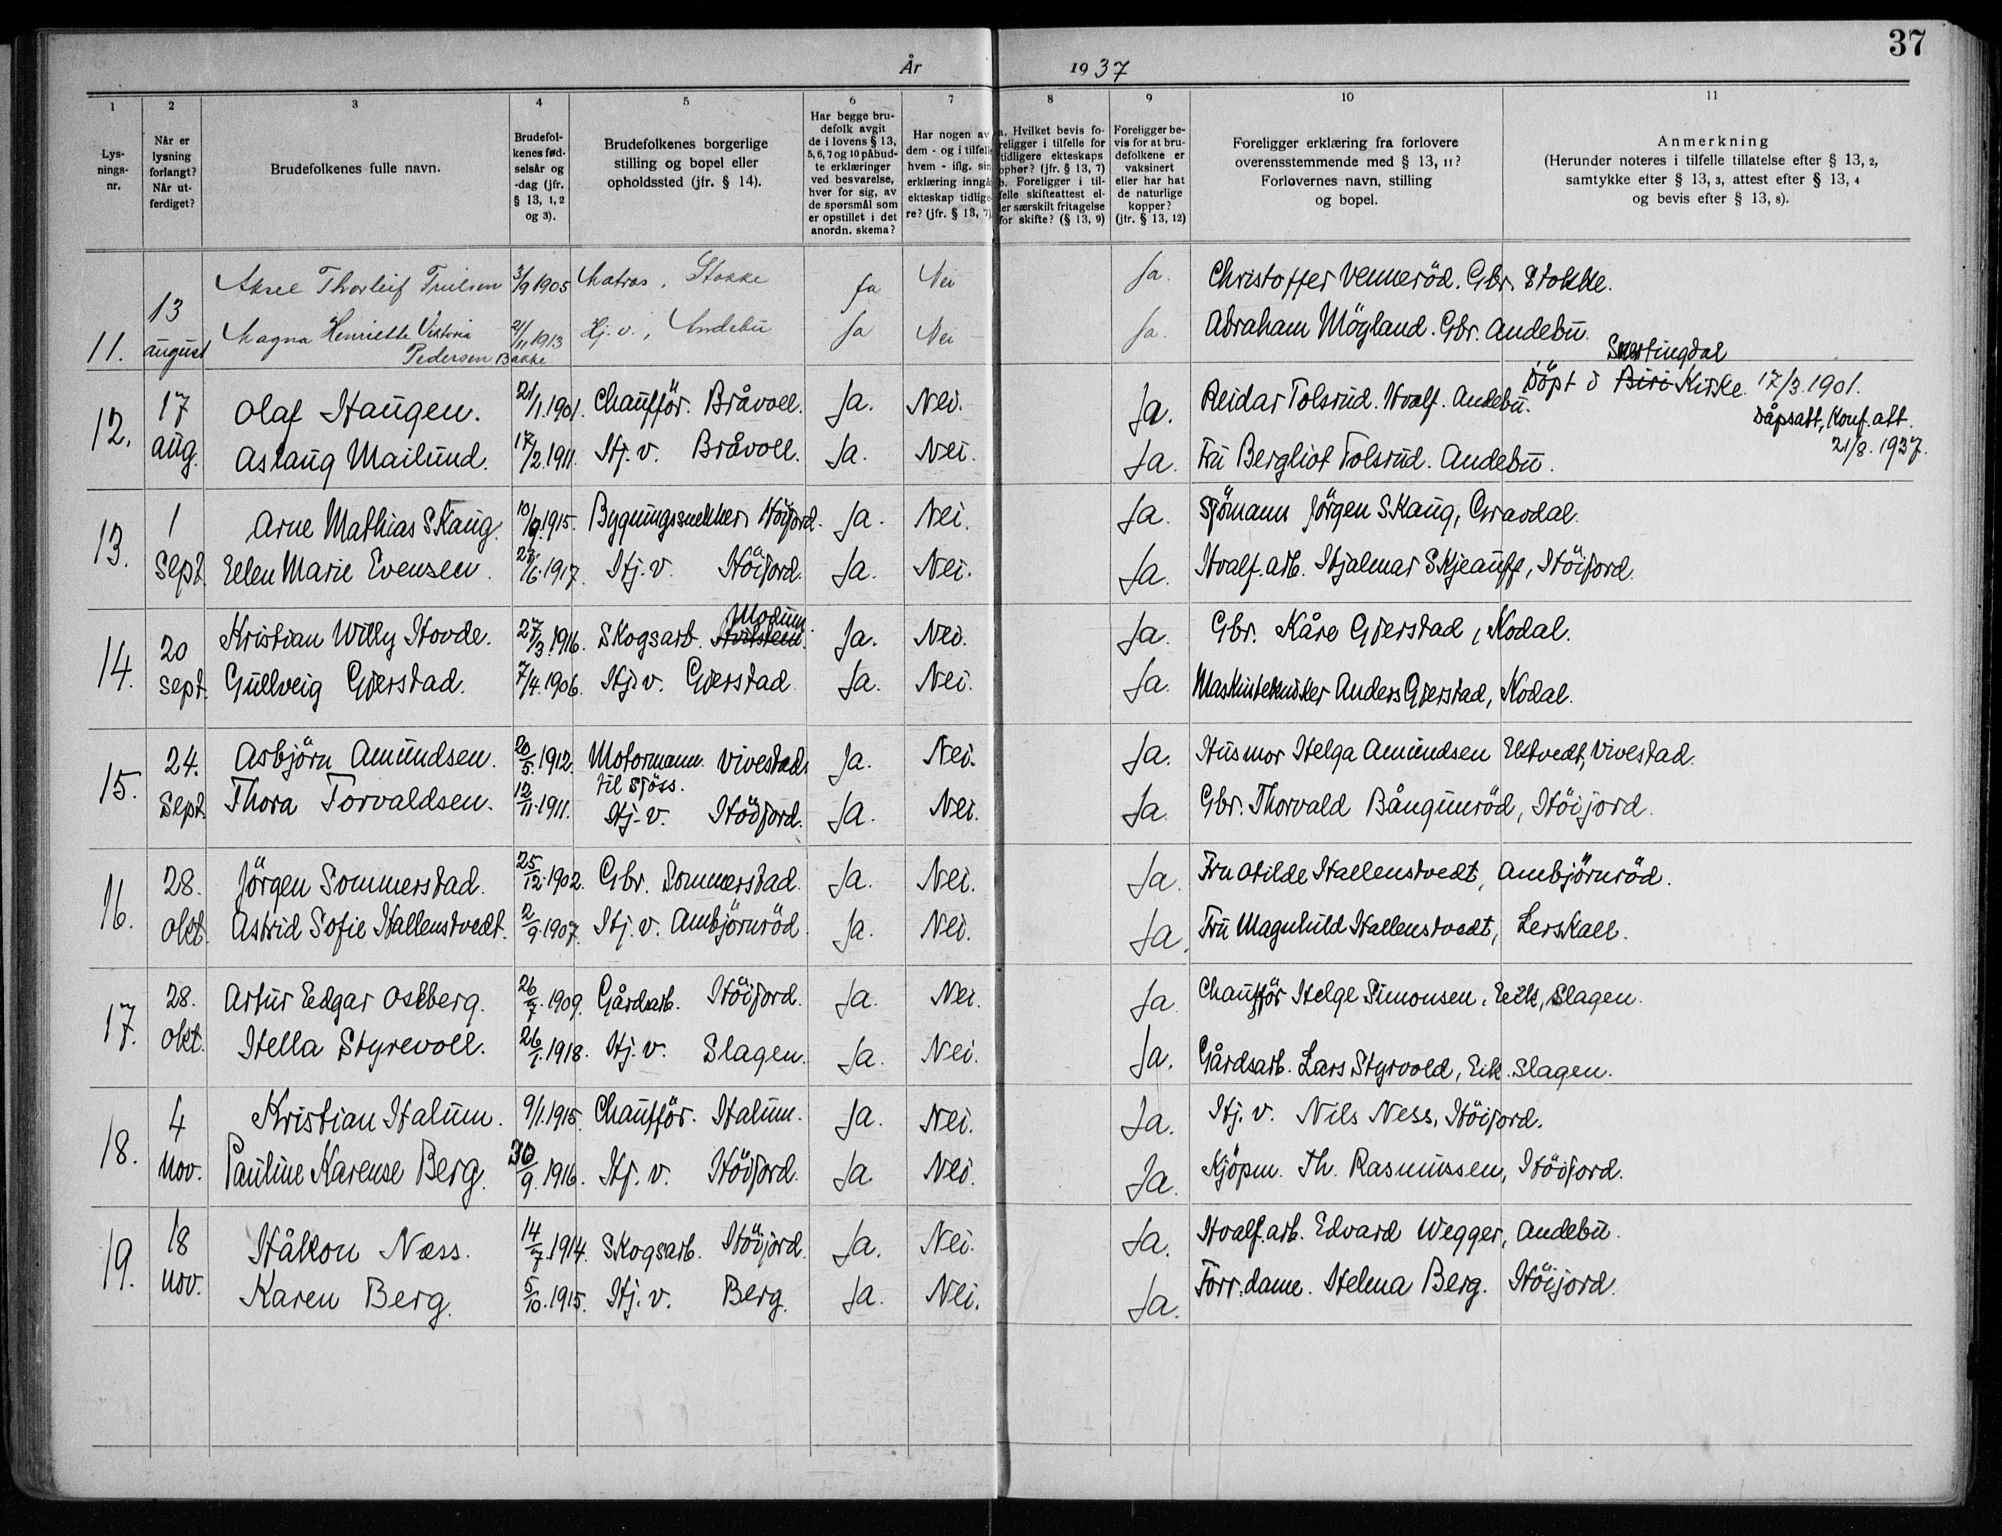 37
År 1937
1 2 3 4 5 6 7 8 9 10 11
Lys-
nings-
nr.
Når er
lysning
forlangt?
Når ut-
ferdiget?
Brudefolkenes fulle navn.
Brudefol-
kenes fød-
selsår og
-dag (jfr.
§ 13, 1, 2
og 3).
Brudefolkenes borgerlige
stilling og bopel eller
opholdssted (jfr. § 14).
Har begge bru-
defolk avgit
de i lovens § 13,
5, 6, 7 og 10 påbud-
te erklæringer
ved besvarelse,
hver for sig, av
de spørsmål som
er opstillet i det
anordn. skema?
Har nogen av
dem - og i tilfelle
hvem - iflg. sin
erklæring inngå
ekteskap tidlige-
re? (jfr. § 13, 7)
a. Hvilket bevis fo-
religger i tilfelle for
tidligere ekteskaps
ophør? (jfr. § 13, 7)
b. Foreligger i til-
felle skifteattest el-
ler særskilt fritagelse
for skifte? (§ 13, 9)
Foreligger be-
vis for at bru-
defolkene er
vaksinert
eller har hat
de naturlige
kopper?
(jfr. § 13, 12)
Foreligger erklæring fra forlovere
overensstemmende med § 13, 11?
Forlovernes navn, stilling
og bopel.
Anmerkning
(Herunder noteres i tilfelle tillatelse efter § 13, 2,
samtykke efter § 13, 3, attest efter § 13, 4
og bevis efter § 13, 8).
11. 13 august
Aksel Thorleif Trulsen 3/9 1905 Matros, Stokke Ja Nei Ja. Christoffer Vennerød. Gbr. Stokke.
Magna Henriette Viktoria 21/11 1913 Hj. v., Andebu Ja Nei Ja. Abraham Mögland. Gbr. Andebu.
Pedersen Bakke
Snertingdal
12. 17 aug.
Olaf Haugen. 21/1.1901. Chaufför. Bråvoll. Ja. Nei. Ja. Reidar Tolsrud. Hvalf. Andebu. Döpt i Biri Kirke. 17/3.1901.
Dåpsatt, Konf. att.
21/8.1937.
Aslaug Mailund. 17/2.1911. Hj. v. Bråvoll. Ja. Nei. Ja. Fru Bergliot Tolsrud. Andebu.
13. 1 Sept.
Arne Mathias Skaug. 10/9.1915. Bygningssnekker, Höijord. Ja. Nei. Ja. Sjömann Jörgen Skaug, Gravdal.
Ellen Marie Evensen. /6.1917. Hj. v. Höijord. Ja. Nei. Ja. Hvalf. arb. Hjalmar Skjeauff, Höijord.
14. 20 Sept.
Kristian Willy Hovde. 27/3.1916. Skogsarb. Modum. Ja. Nei. Ja. Gbr. Kåre Gjerstad, Kodal.
Gullveig Gjerstad. 7/4.1906. Hj. v. Gjerstad. Ja. Nei. Ja. Maskintekniker Anders Gjerstad, Kodal.
15. 24. Sept.
Asbjörn Amundsen. 20/5.1912. Motormann. Vivestad. Ja. Nei. Ja. Husmor Helga Amundsen Elstvedt, Vivestad.
til sjöss.
Thora Torvaldsen. 12/11.1911. Hj. v. Höijord. Ja. Nei. Ja. Gbr. Thorvald Bångunröd, Höijord.
16. 28. Okt.
Jörgen Sommerstad. 25/12.1902. Gbr. Sommerstad. Ja. Nei. Ja. Fru Otilde Hallenstvedt, Ambjörnröd.
Astrid Sofie Hallenstvedt. 2/9.1907. Hj. v. Ambjörnröd Ja. Nei. Ja. Fru Magnhild Hallenstvedt, Lerskall.
17. 28. Okt.
Artur Edgar Ostberg. 26/7.1909. Gårdsarb. Höijord. Ja. Nei. Ja. Chauffør Helge Simonsen, Eik, Slagen.
Hella Styrevoll. 26/1.1918. Hj. v. Slagen. Ja. Nei. Ja. Gårdsarb. Lars Styrvold, Eik. Slagen.
18. 4 Nov.
Kristian Halum. 9/1.1915. Chauffør. Halum. Ja. Nei. Ja. Hj. v. Nils Ness, Höijord.
Pauline Karense Berg. 30/9.1916. Hj. v. Höijord. Ja Nei. Ja. Kjöpm. Th. Rasmussen, Höijord.
19. 18 Nov.
Håkon Næss. 14/7.1914. Skogsarb. Höijord. Ja. Nei. Ja. Hvalf. arb. Edvard Wegger, Andebu.
Karen Berg. 5/10.1915. Hj. v. Berg. Ja. Nei. Ja. Forr. dame. Helma Berg. Höijord.